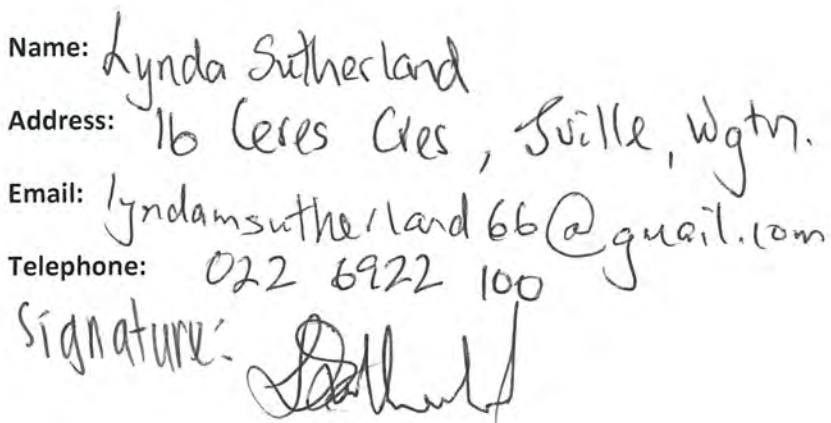 Name: Lynda Sutherland
Address: 16 Ceres Cres, J'ville, Wgtn.
Email: lyndamsutherland66@gmail.com
Telephone: 022 6922 100
Signature: